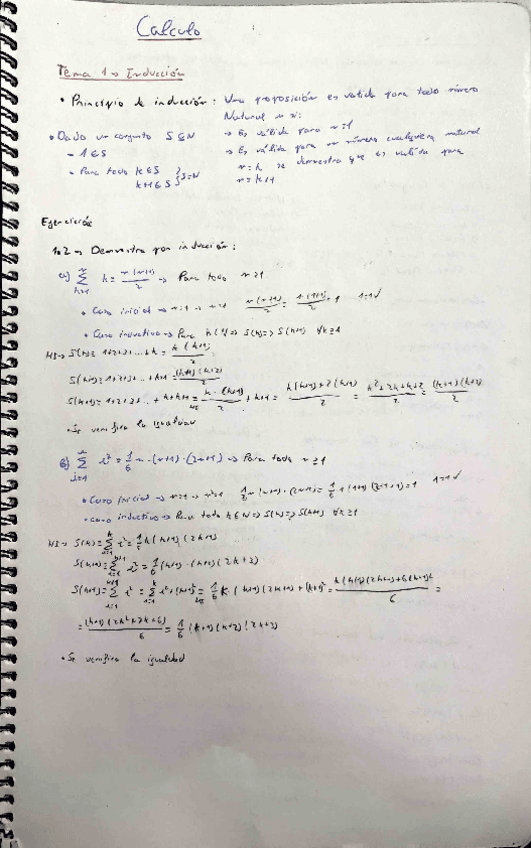 Calculo
Tema 1 → Inducción
• Principio de inducción: Una proposición es valida para todo número
Natural n si:
→ Es válida para n=1
→ Es válida para un número cualquiera natural
n=k se demuestra que es valida para
n=k+1
• Dado un conjunto S⊆N
- 1∈S
- Para todo k∈S
k+1∈S } S=N
Ejercicios
1.2 → Demuestra por inducción:
a) ∑ k = n(n+1)/2 → Para todo n≥1
• Caso inicial → n=1 → n(n+1)/2 = 1(1+1)/2 = 1 1=1✓
• Caso inductivo → Para S(k) => S(k+1) ∀k≥1
HI → S(k)= 1+2+3+...+k = k(k+1)/2
S(k+1)= 1+2+3+...+k+1 = (k+1)(k+2)/2
S(k+1)= 1+2+3+...+k+k+1 = k·(k+1)/2 + k+1 = k(k+1)+2(k+1)/2 = k²+2k+k+2/2 = (k+1)(k+2)/2
• Se verifica la igualdad
b) ∑ i² = 1/6 n·(n+1)·(2n+1) → Para todo n≥1
• Caso inicial → n=1 → 1/6 n(n+1)·(2n+1) = 1/6 1(1+1)(2·1+1) = 1 1=1✓
• Caso inductivo → Para todo k∈N => S(k) => S(k+1) ∀k≥1
HI → S(k)= ∑ i² = 1/6 k(k+1)(2k+1)
S(k+1)= ∑ i² = 1/6 (k+1)·(k+2)
S(k+1)= ∑ i² = ∑ i² + (k+1)² = 1/6 k(k+1)(2k+1) + (k+1)² = k(k+1)(2k+1)+6(k+1)²/6 =
= (k+1)(2k²+7k+6)/6 = 1/6 (k+1)(k+2)
• Se verifica la igualdad